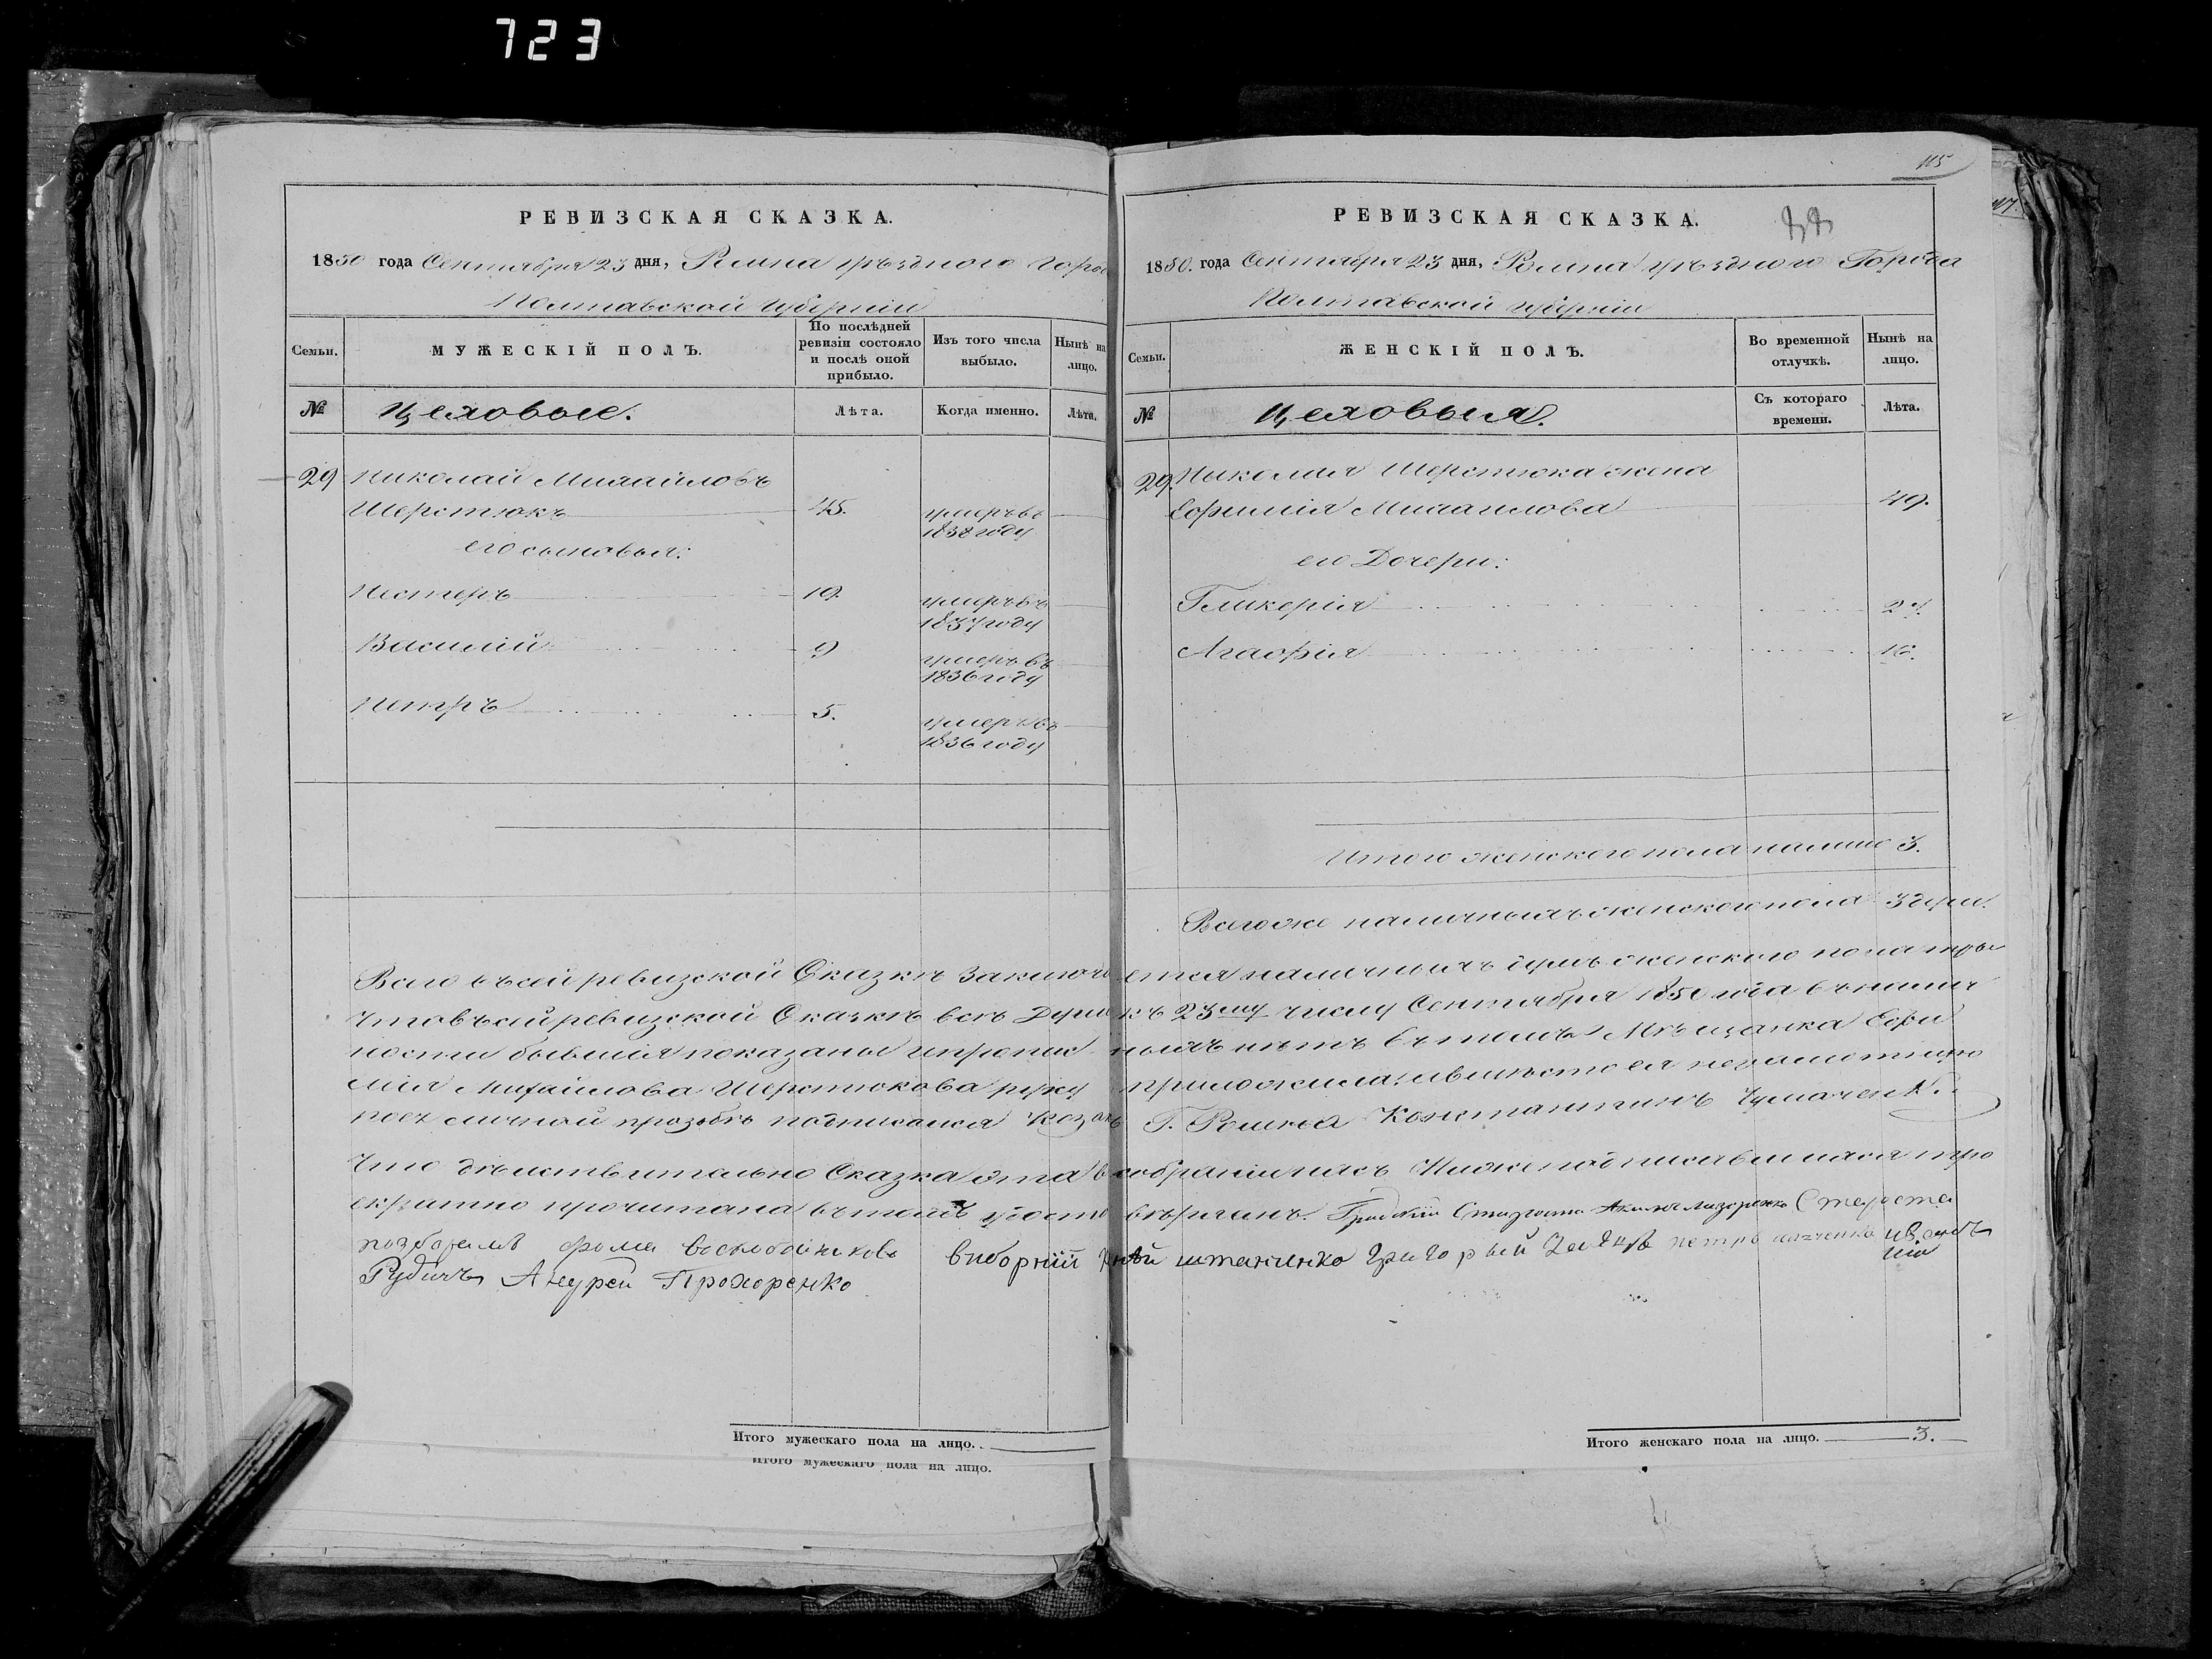 723
РЕВИЗСКАЯ СКАЗКА.
1850 года Сентября 23 дня, Ромна уѣзднаго горо
Полтавской губерніи
Семьи.
МУЖЕСКІЙ ПОЛЪ.
По послѣдней ревизіи состояло и послѣ оной прибыло.
Изъ того числа выбыло.
Нынѣ на лицо.
№
Цеховые.
Лѣта.
Когда именно.
Лѣта.
29 Николай Михайловъ
Шерстюкъ 45. умеръ въ
1838 году
его сыновья:
Нестеръ 19. умеръ въ
1837 году
Василій 9 умеръ въ
1836 году
Петръ 5. умеръ въ
1836 году
Итого мужескаго пола на лицо.
Итого мужескаго пола на лицо.
115
117.
РЕВИЗСКАЯ СКАЗКА.
1850. года Сентября 23 дня, Ромна уѣзднаго Города
Полтавской губерніи
Семьи.
ЖЕНСКІЙ ПОЛЪ.
Во временной отлучкѣ.
Нынѣ на лицо.
№
Цеховыя.
Съ котораго времени.
Лѣта.
29. Николая Шерстюка жена
Ефимія Михаилова 49.
его Дочери:
Гликерія
Агафія 16.
Итого женского пола налицо 3.
Всего же наличныхъ женского пола 3 души.
Всего въ сей ревизской Сказкѣ заключается наличныхъ душъ женского пола три
Что въ сей ревизской Сказкѣ всѣ Души къ 23му числу Сентября 1850 года в налич
ности бывшія показаны и прописныхъ нѣтъ въ томъ Мѣщанка Ефи
мія Михайлова Шерстюкова руку приложила; а вмѣсто ея неграмотную
по ея личной прозьбѣ подписался Козакъ Г. Ромна Константинъ Чумаченко
Что дѣиствительно Сказка эта в собраніи насъ Ниже подписавшихся тро
екратно прочитана въ томъ удостовѣряемъ. Градскій Староста Лазаренко Староста
фома выборній штаненко григорый петро иванъ
Рудичъ Андрей Прохоренко
Итого женскаго пола на лицо. 3.